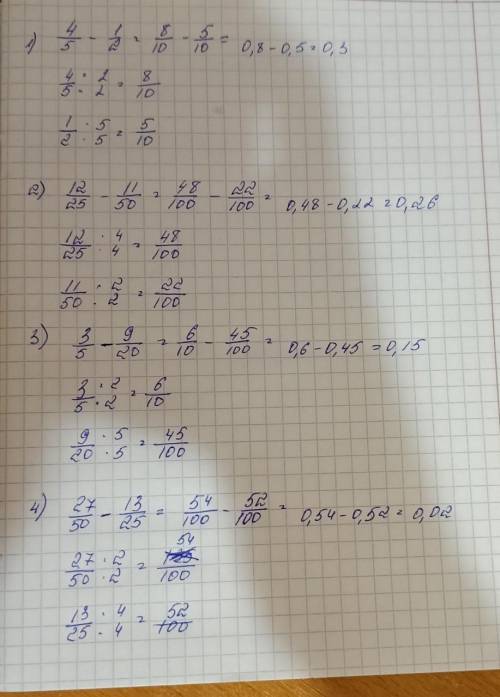 1) 4/5 - 1/2 = 8/10 - 5/10 = 0,8 - 0,5 = 0,3
4/5 · 2/2 = 8/10
1/2 · 5/5 = 5/10
2) 12/25 - 11/50 = 48/100 - 22/100 = 0,48 - 0,22 = 0,26
12/25 · 4/4 = 48/100
11/50 · 2/2 = 22/100
3) 3/5 - 9/20 = 6/10 - 45/100 = 0,6 - 0,45 = 0,15
3/5 · 2/2 = 6/10
9/20 · 5/5 = 45/100
4) 27/50 - 13/25 = 54/100 - 52/100 = 0,54 - 0,52 = 0,02
27/50 · 2/2 = 54/100
13/25 · 4/4 = 52/100